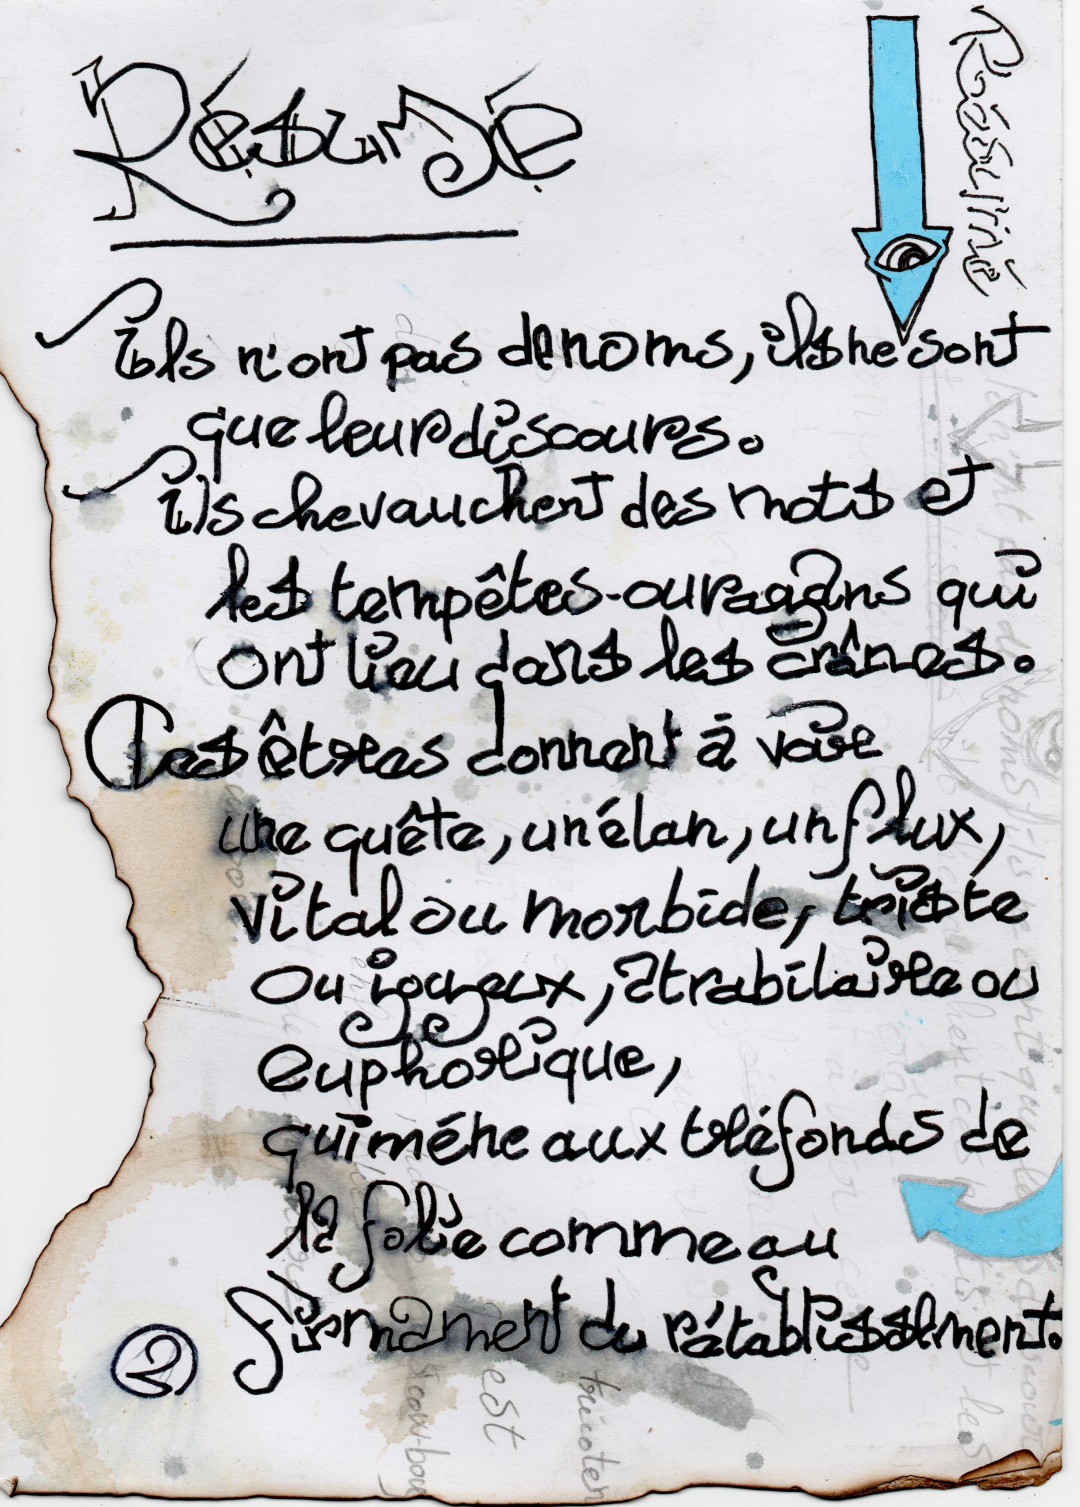 Résumé
Ils n'ont pas de noms, ils ne sont
que leur discours.
Ils chevauchent des mots et
les tempêtes-ouragans qui
ont lieu dans les crânes.
Ces êtres donnent à voir
une quête, un élan, un flux,
vital ou morbide, triste
ou joyeux, atrabilaire ou
euphorique,
qui mène aux tréfonds de
la folie comme au
firmament du rétablissement.
2
est
tricoter
cow-boy